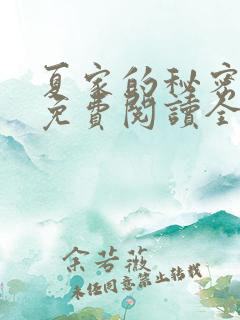 夏家的秘密
免費閱讀全
余若薇
未经同意禁止转载